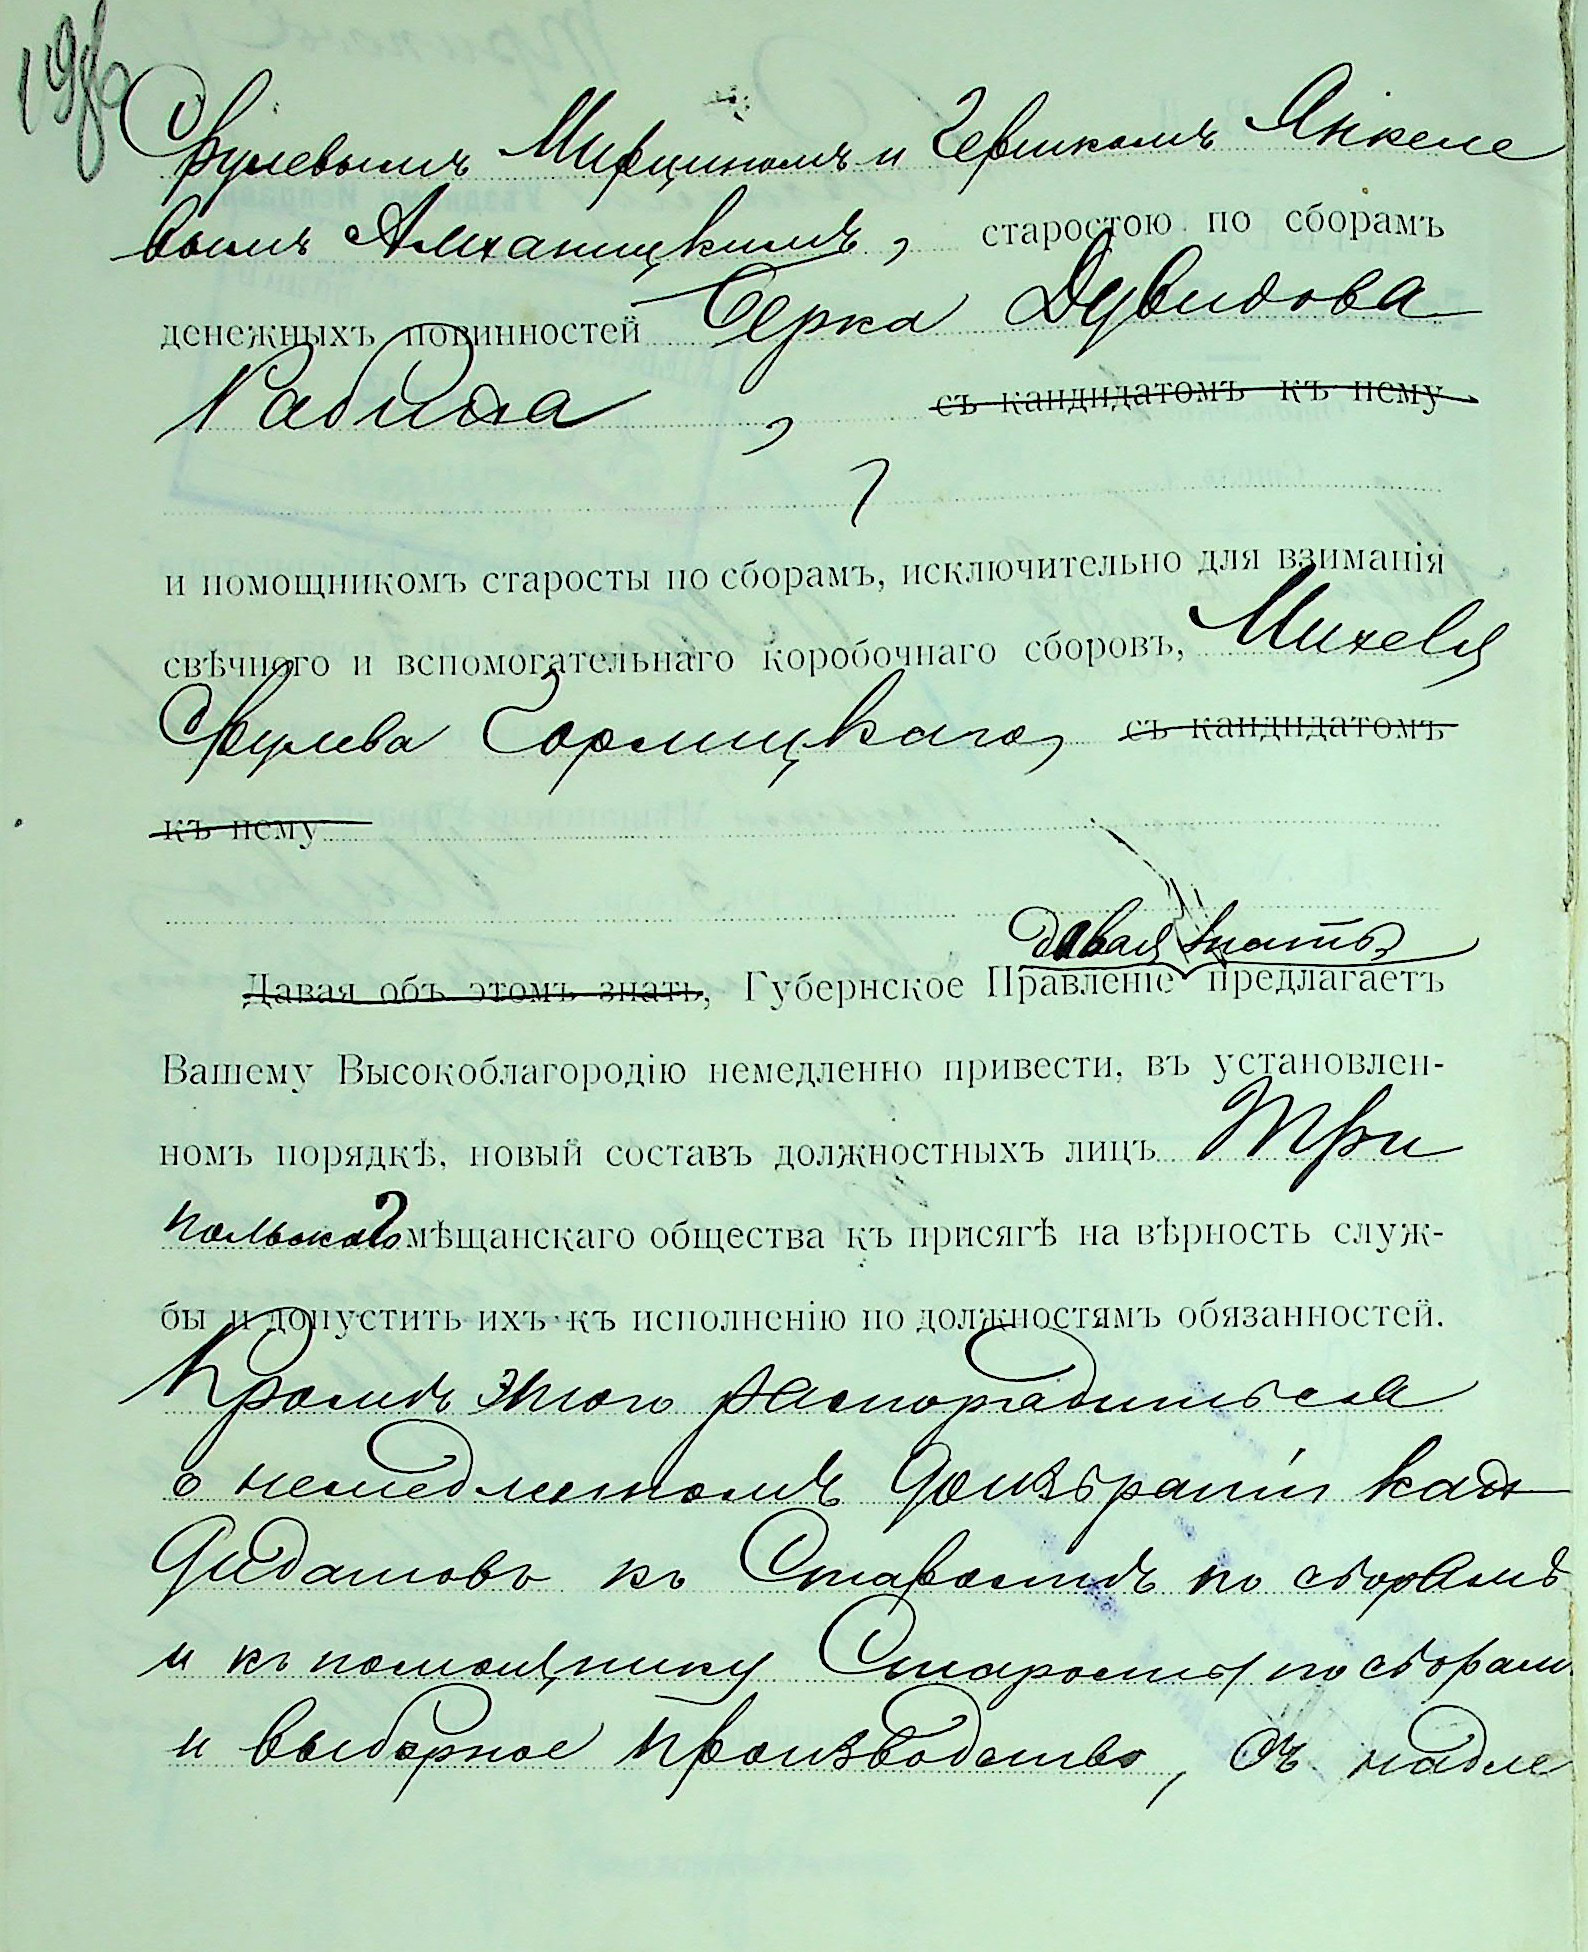 Срулевымъ Мирцинымъ и Гершкомъ Янкеле
вымъ Амханицкимъ, старостою по сборамъ
денежныхъ повинностей Берка Дувидова
Кабиша, съ кандидатомъ къ нему
и помощникомъ старосты по сборамъ, исключительно для взиманія
свѣчного и вспомогательнаго коробочнаго сборовъ, Михеля
Срулева Горлицкаго, съ кандидатомъ
къ нему
давая знать
Давая объ этомъ знать, Губернское Правленіе предлагаетъ
Вашему Высокоблагородію немедленно привести, въ установлен-
номъ порядкѣ, новый составъ должностныхъ лицъ Три
польскаго мѣщанскаго общества къ присягѣ на вѣрность служ-
бы и допустить ихъ къ исполненію по должностямъ обязанностей.
Кромѣ этого распорядиться
о немедленномъ доизбраніи кан
дидатовъ къ Старостѣ по сборамъ
и къ помощнику Старосты по сборамъ
и выборное производство, съ надле